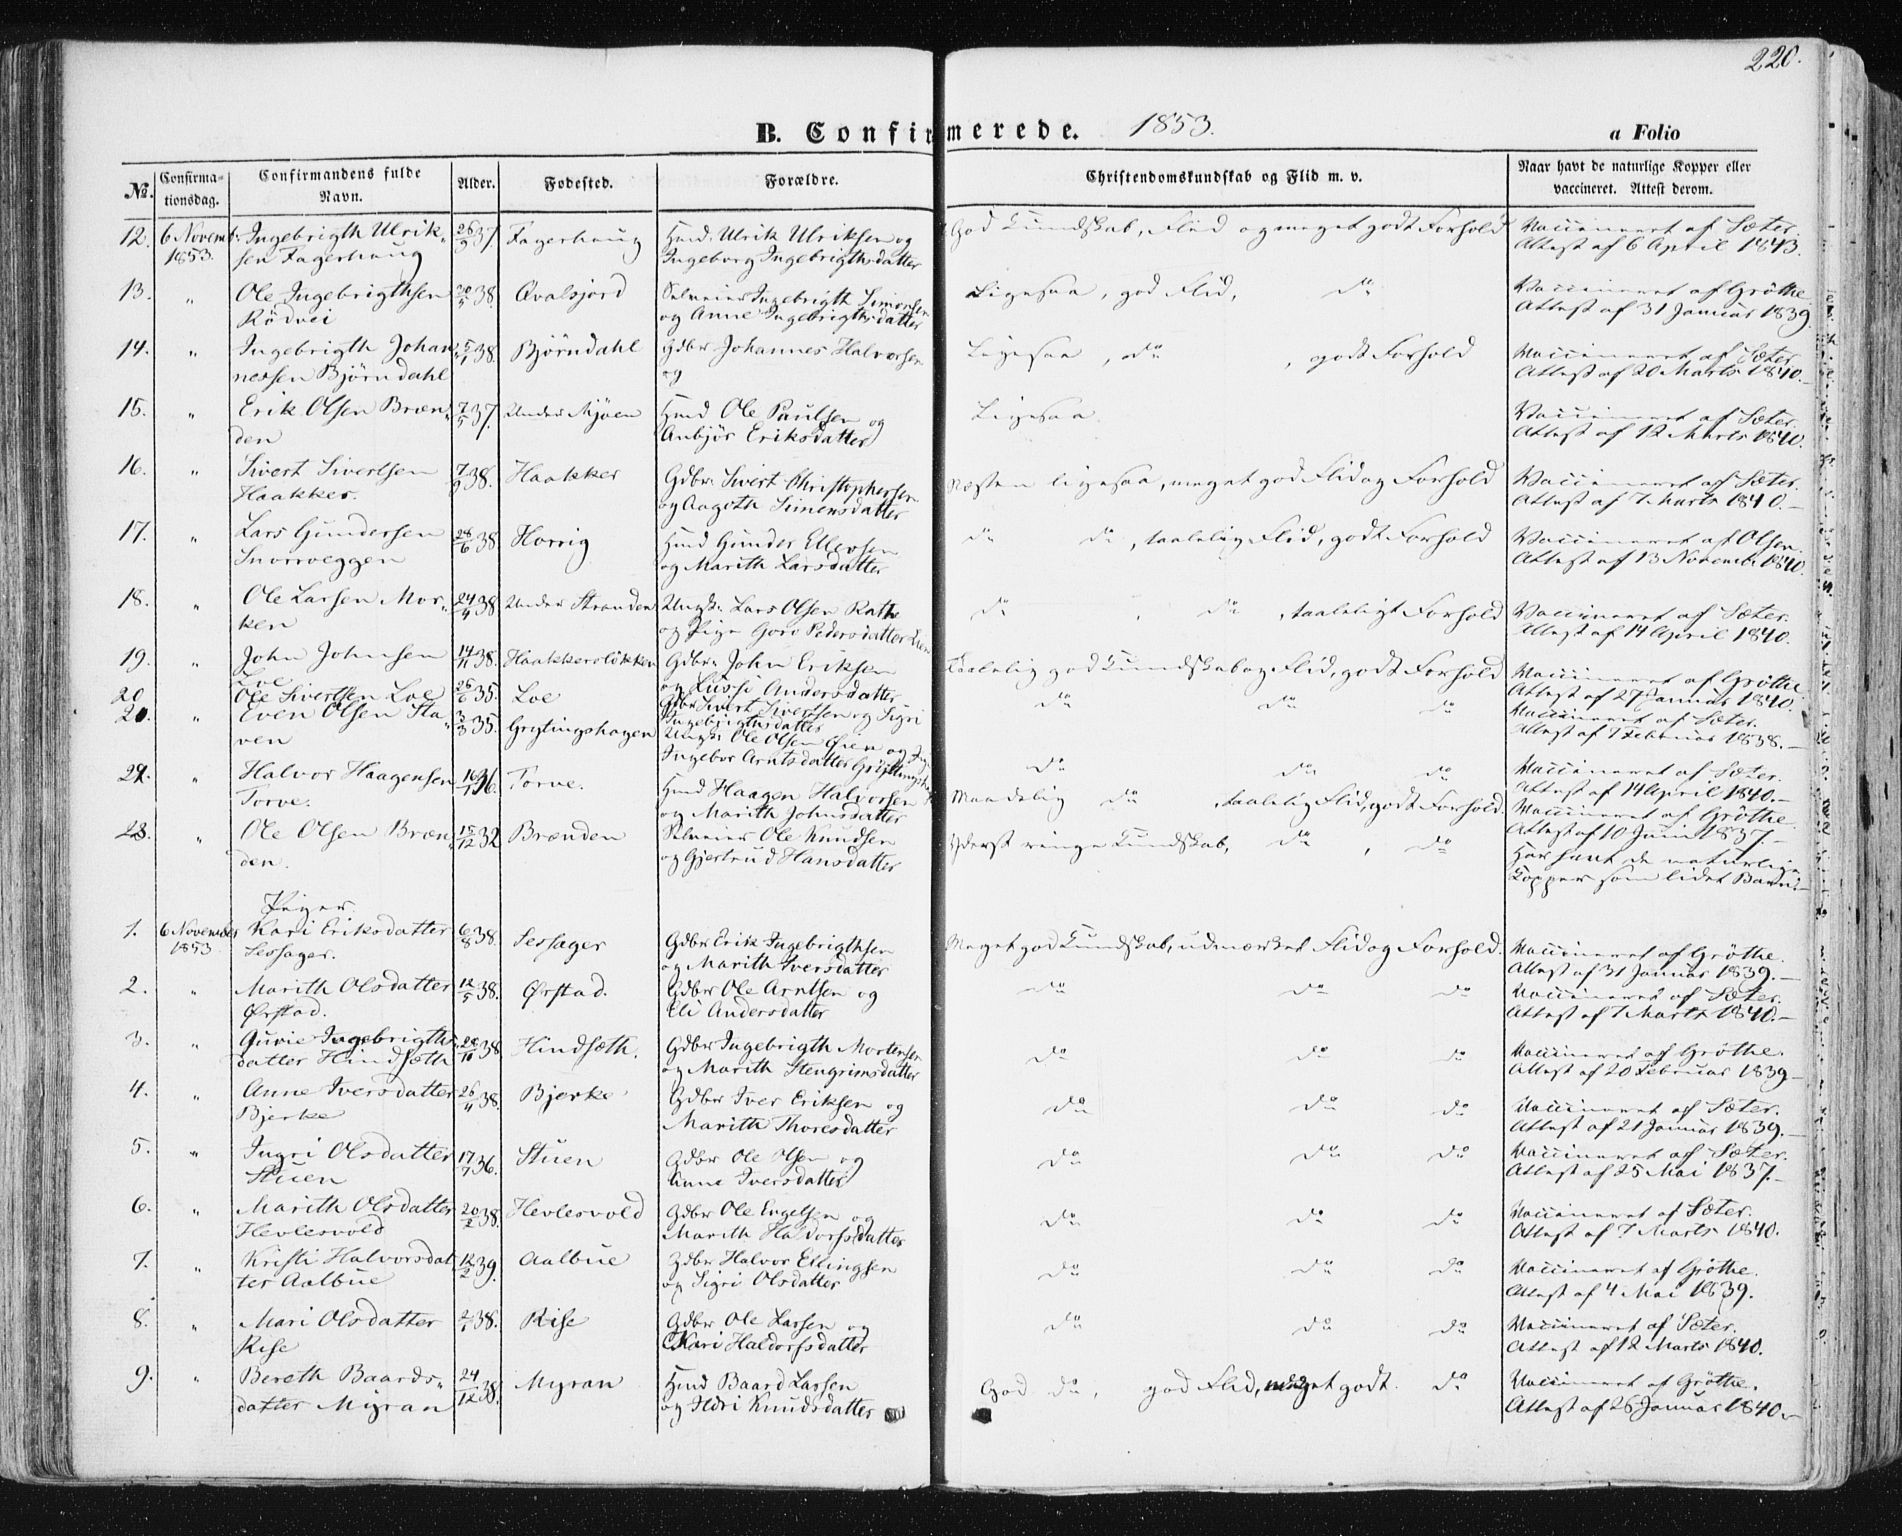 220.
B. Confirmerede. 1853.
a Folio
№. Confirmationsdag. Confirmandens fulde Navn. Alder. Fødested. Forældre. Christendomskundskab og Flid m. v. Naar havt de naturlige Kopper eller vaccineret. Attest derom.
12. 6 Novemb: Ingebrigth Ulrik- 26/9 37. Fagerhaug Huusd: Ulrik Ulriksen og God Kundskab, Flid og meget godt Forhold Vaccineret af Sæter.
1853. sen Fagerhaug Ingeborg Ingebrigthsdatter Attest af 6 April 1843.
13. " Ole Ingebrigthsen 20/5 38. Qvalsjord Selveier Ingebrigth Simonsen Ligesaa, god Flid, do Vaccineret af Gröthe.
Rödvei og Anne Ingebrigthsdatter Attest af 31 Januar 1839.
14. " Ingebrigth Johan- 38. Bjørndahl Gdbr Johannes Halvorsen Ligesaa, do, godt Forhold Vaccineret af Sæter.
nessen Bjørndahl og Attest af 20 Marts 1840.
15. " Erik Olsen Bræn- 7/5 37. Under Mjøen Huusd Ole Paulsen og Ligesaa Vaccineret af Sæter.
den Anbjør Eriksdatter Attest af 12 Marts 1840.
16. " Sivert Sivertsen 7/9 38. Haakker Gdbr: Sivert Christophersen Næsten ligesaa, meget god Flid og Forhold Vaccineret af Sæter.
Haakker. og Aagoth Simensdatter Attest af 7 Marts 1840.
17. " Lars Gundersen 28/6 38. Horrig Huusd Gunder Ellevsen do do, taalelig Flid, godt Forhold Vaccineret af Olsen.
Snorroeggen og Marith Larsdatter Attest af 13 Novemb 1840.
18. " Ole Larsen Mor- 24/4 38. Under Stranden Ungk: Lars Olsen Rathe do, do, taaleligt Forhold Vaccineret af Sæter.
ken og Pige Goro Pedersdatter Attest af 14 April 1840.
19. " John Johnsen 14/11 38. Haakkersløkken Gdbr: John Eriksen Taalelig god Kundskab og Flid, godt Forhold Vaccineret af Gröthe.
Loe og Lussi Andersdatter Attest af 27 Januar 1840.
20. Ole Sivertsen Loe 26/6 35. Loe Gdbr Sivert Sivertsen og Sigri do do do Vaccineret af Sæter.
Ingebrigthsdatter Attest af 7 Februar 1838.
21. " Even Olsen Sta- 3/3 35. Grytingshagen Ungk: Ole Olsen Øien og Pige do do do Vaccineret af Sæter.
ven Ingebor Arntsdatter Attest af 14 April 1840.
22. " Halvor Haagensen 36. Torve. Huusd Haagen Halvorsen Maadelig do, taalelig Flid, godt Forhold. Vaccineret af Gröthe.
Torve. og Marith Johnsdatter Attest af 10 Juni 1837.
23. " Ole Olsen Bræn- 15/12 32 Brænden Selveier Ole Knudsen Yderst ringe Kundskab, do, do Har havt de naturlige
den. og Gjertrud Hansdatter Kopper som lidet Barn.
Piger.
1. 6 November Kari Eriksdatter 6/8 38. Sessager Gdbr Erik Ingebrigthsen Meget god Kundskab, udmærket Flid og Forhold. Vaccineret af Gröthe.
1853 Sessager. og Marith Iversdatter Attest af 31 Januar 1839.
2. " Marith Olsdatter 12/5 38. Ørstad. Gdbr Ole Arntsen og do do do Vaccineret af Sæter.
Ørstad. Eli Andersdatter Attest af 7 Marts 1840.
3. " Guvie Ingebrigths- 28/10 38 Hindsæth. Gdbr Ingebrigth Mortensen do do do Vaccineret af Gröthe.
datter Hindsæth og Marith Stengrimsdatter Attest af 20 Februar 1839
4. " Anne Iversdatter 26/11 38. Bjerke Gdbr Iver Eriksen og do do do Vaccineret af Sæter.
Bjerke Marith Thoresdatter Attest af 21 Januar 1839.
5. " Ingri Olsdatter 17/7 36. Stuen Gdbr Ole Olsen og do do do Vaccineret af Sæter.
Stuen Anne Iversdatter Attest af 25 Mai 1837.
6. " Marith Olsdatter 20/2 38. Hevlesvold Gdbr Ole Engelsen og do do do Vaccineret af Sæter.
Hevlesvold Marith Haldorsdatter Attest af 7 Marts 1840.
7. " Kristi Halvorsdat- 12/2 39. Aalbue Gdbr Halvor Ellingsen do do do Vaccineret af Gröthe.
ter Aalbue og Sigri Olsdatter Attest af 4 Mai 1839.
8. " Mari Olsdatter 2/1 38. Rise Gdbr Ole Larsen og do do do Vaccineret af Sæter.
Rise Kari Haldorsdatter Attest af 12 Marts 1840.
9. " Bereth Baards- 24/12 38. Myran Huusd Baard Larsen God do, god Flid, meget godt do Vaccineret af Gröthe.
datter Myran og Ildri Knudsdatter Attest af 26 Januar 1840.